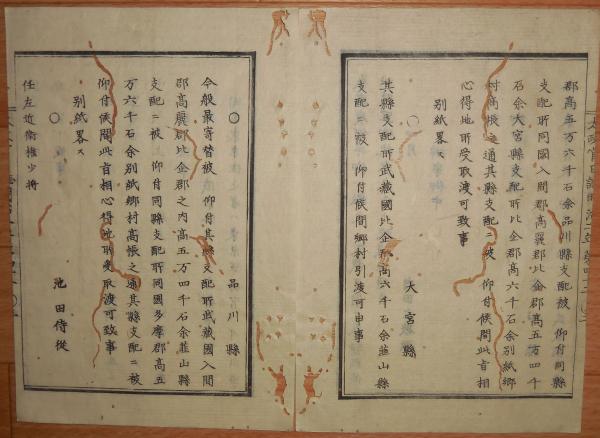 太政官日誌
郡高五万六千石余品川縣支配被 仰付同縣
支配所同國入間郡高麗郡比企郡高五万四千
石余大宮縣支配所比企郡高六千石余別紙郷
村高帳之通其縣支配ニ被 仰付候間此旨相
心得地所受取渡可致事
別紙畧ス
○ 大宮縣
其縣支配所武蔵國比企郡高六千石余韮山縣
支配ニ被 仰付候間郷村引渡可申事
○ 品川縣
今般最寄替被 仰付其縣支配所武蔵國入間
郡高麗郡比企郡之内高五万四千石余韮山縣
支配ニ被 仰付同縣支配所同國多摩郡高五
万六千石余別紙郷村高帳之通其縣支配ニ被
仰付候間此旨相心得地所受取渡可致事
別紙畧ス
○ 池田侍従
任左近衛権少将